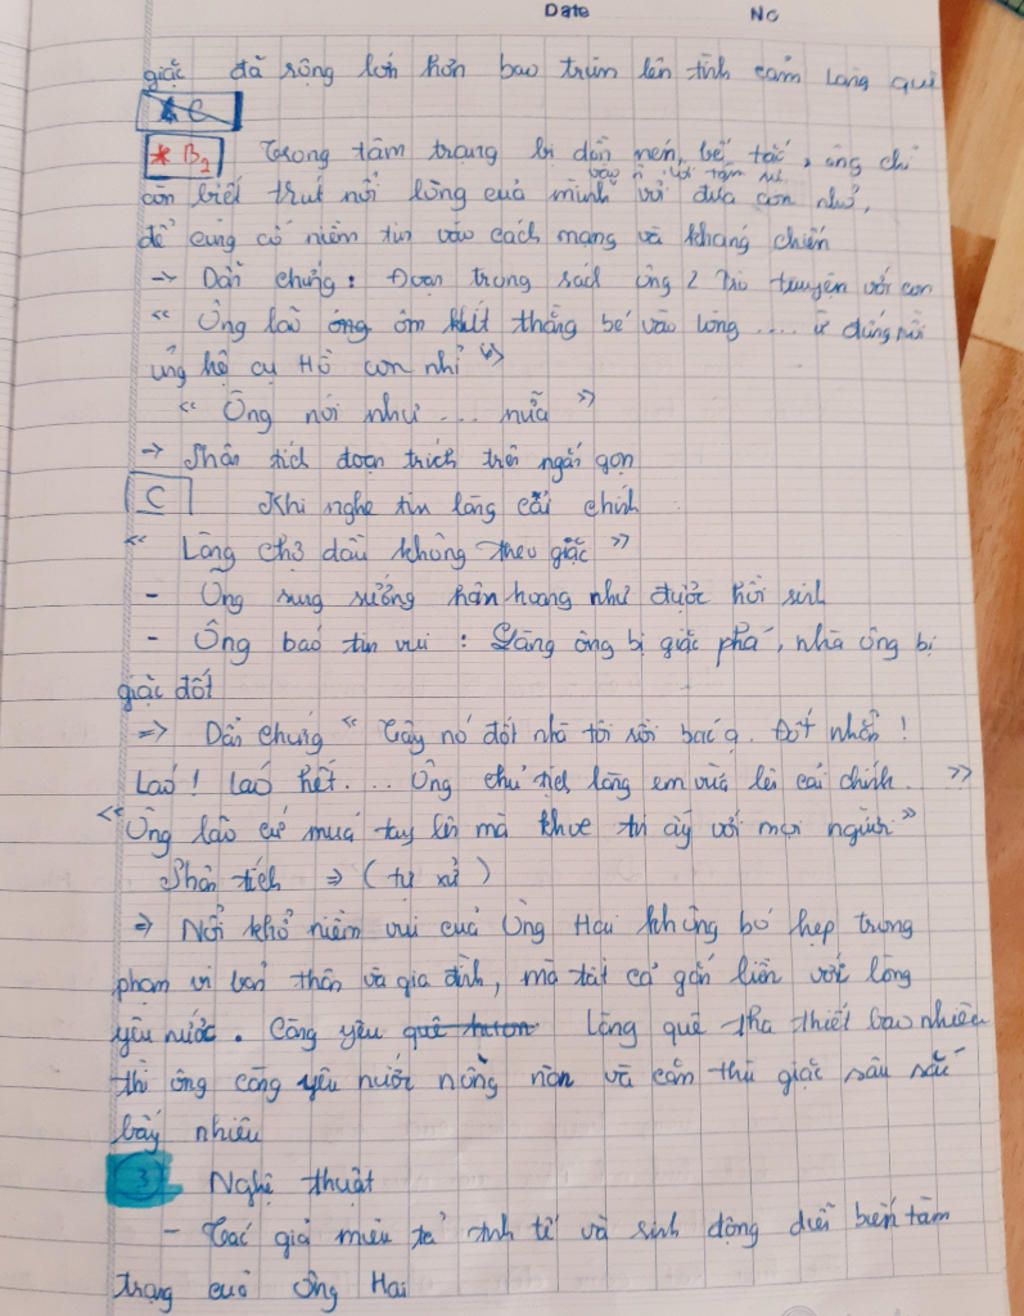 Date No
giặc đã rộng lớn hơn bao trùm lên tình cảm làng quê
* B2 Trong tâm trạng bị dồn nén, bế tắc, ông chỉ
còn biết trút nỗi lòng của mình với đứa con nhỏ,
để củng cố niềm tin vào cách mạng và kháng chiến
→ Dẫn chứng: Đoạn trong sách ông 2 trò truyện với con
" Ông lão ôm khít thằng bé vào lòng .... ừ đúng rồi
ủng hộ cụ Hồ con nhỉ "
" Ông nói như ... nữa "
→ Phân tích đoạn trích trên ngắn gọn
C Khi nghe tin làng cải chính
" Làng chợ dầu không theo giặc "
- Ông sung sướng hân hoang như được hồi sinh
- Ông báo tin vui : Làng ông bị giặc phá, nhà ông bị
giặc đốt
=> Dẫn chứng " Tây nó đốt nhà tôi rồi bác ạ. Đốt nhẵn !
Láo ! Láo hết. .. Ông chủ tịch làng em vừa lên cải chính. "
" Ông lão cứ múa tay lên mà khoe tin ấy với mọi người "
Phân tích => ( tự xử )
=> Nỗi khổ niềm vui của Ông Hai không bó hẹp trong
phạm vi bản thân và gia đình, mà tất cả gắn liền với lòng
yêu nước. Càng yêu quê hươn làng quê tha thiết bao nhiêu
thì ông càng yêu nước nồng nàn và căn thù giặc sâu sắc
bấy nhiêu
3 Nghệ thuật
- Tác giả miêu tả tinh tế và sinh động diễn biến tâm
trạng của Ông Hai